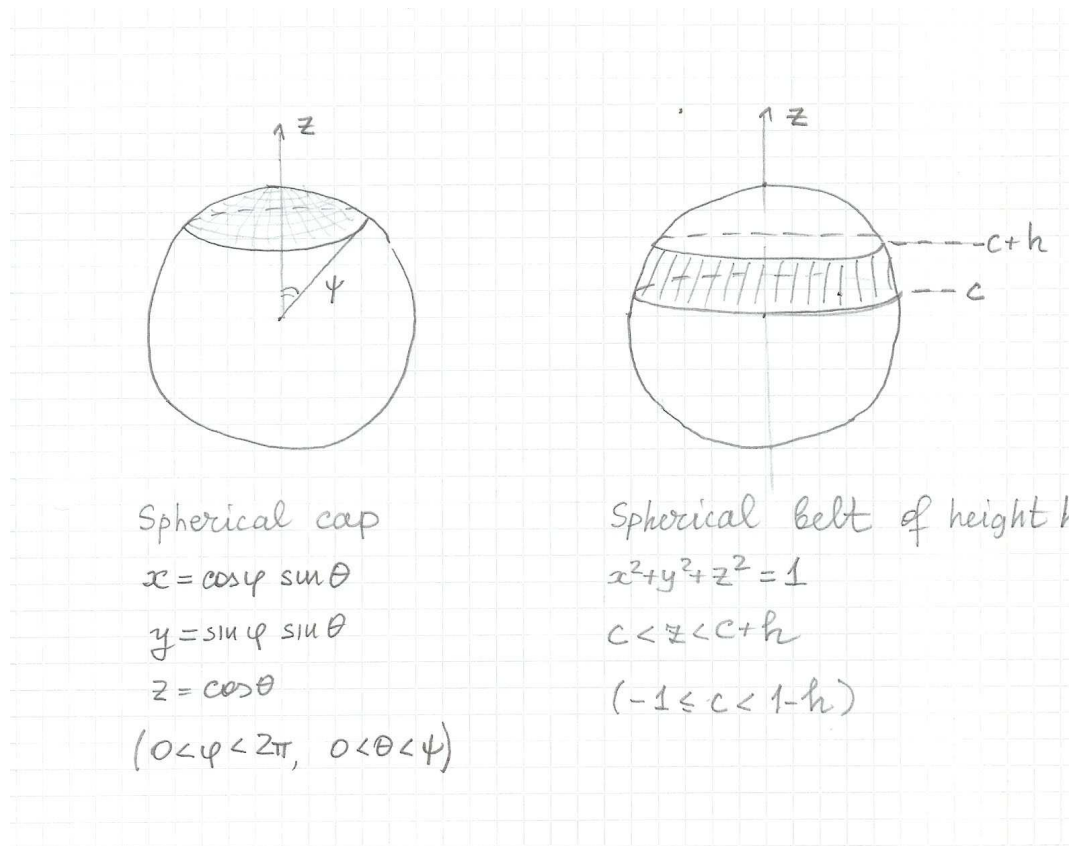 z
ψ
Spherical cap
x = cosφ sinθ
y = sinφ sinθ
z = cosθ
(0<φ<2π, 0<θ<ψ)
z
c+h
c
Spherical belt of height h
x²+y²+z² = 1
c<z<c+h
(-1≤c<1-h)